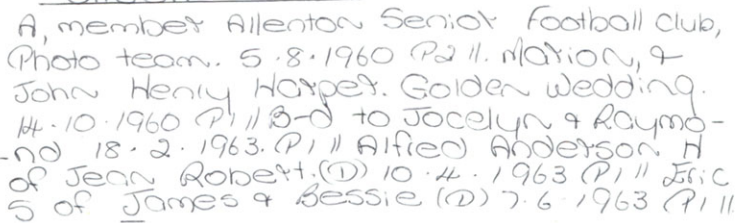 A, member Allenton Senior Football club,
Photo team. 5.8.1960 P2 11. Marion, &
John Henry Harper. Golden Wedding.
14.10.1960 P1 // B-d to Jocelyn & Raymo-
-nd 18.2.1963. P1 // Alfred Anderson H
of Jean Robert. (D) 10.4.1963 P1 // Eric
S of James & Bessie (D) 7.6.1963 P1 11